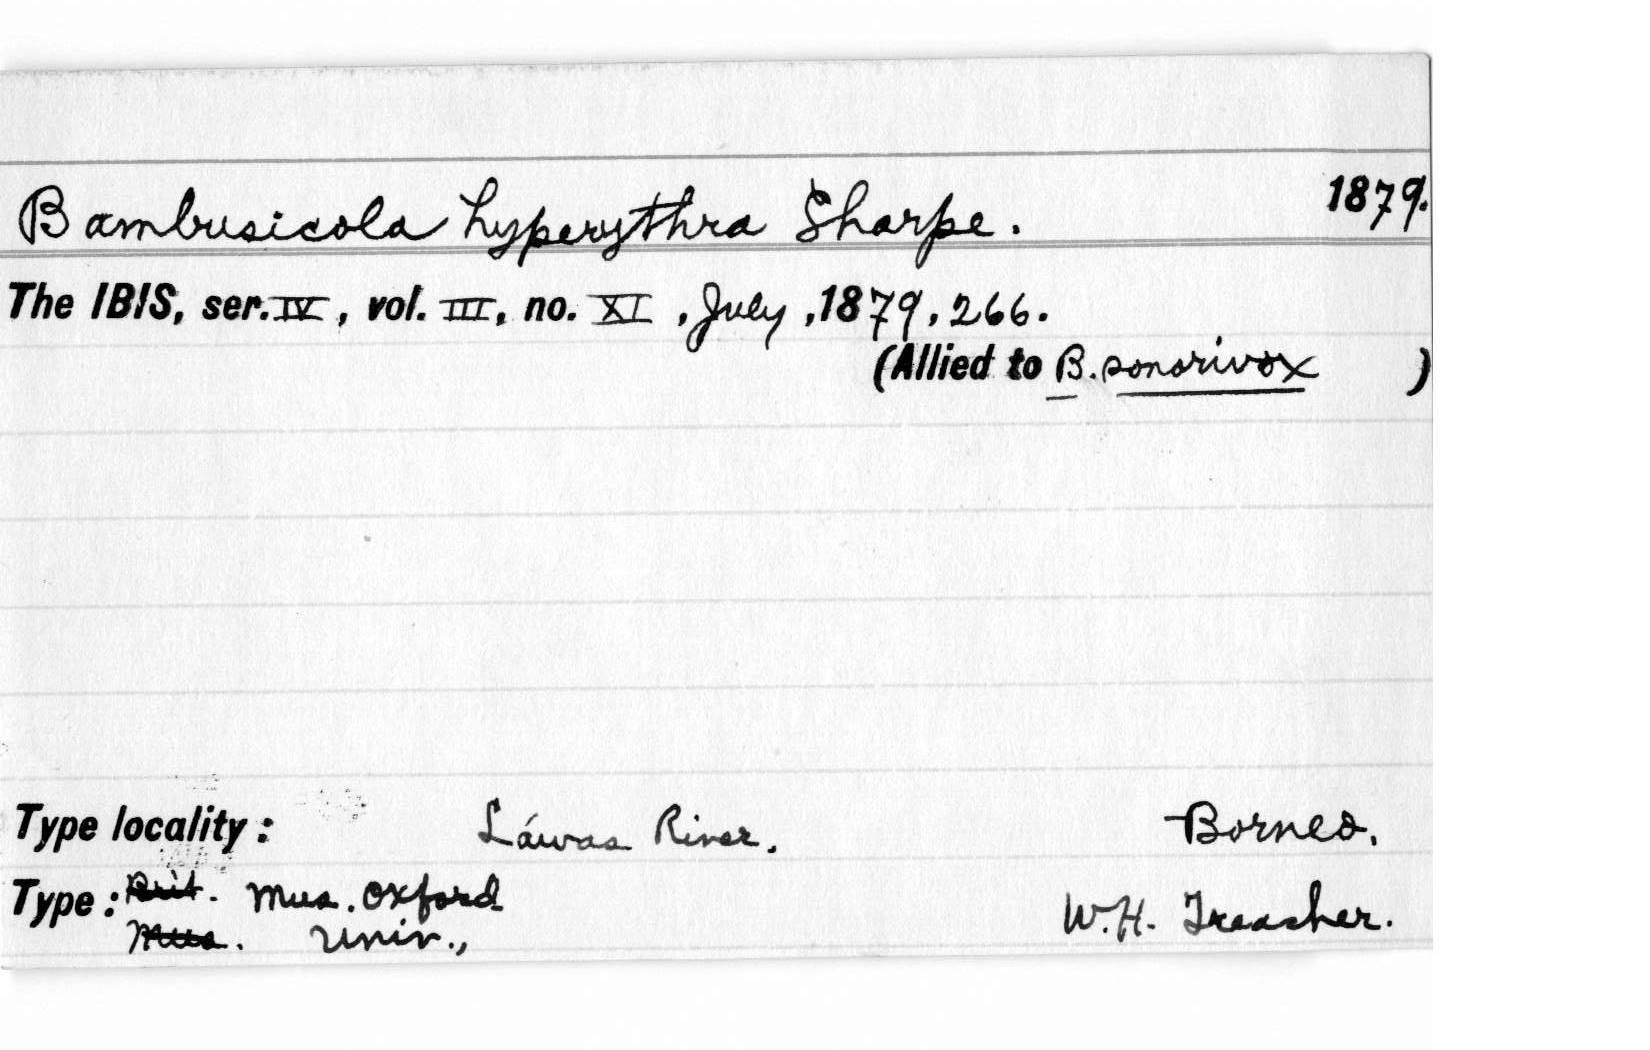 Bambusicola hyperythra Sharpe. 1879.
The IBIS, ser. IV, vol. III, no. XI, July, 1879, 266.
(Allied to B. sonorivox )
Type locality: Láwas River. Borneo.
Type: Brit. Mus. Oxford W.H. Treacher.
Mus. Univ.,